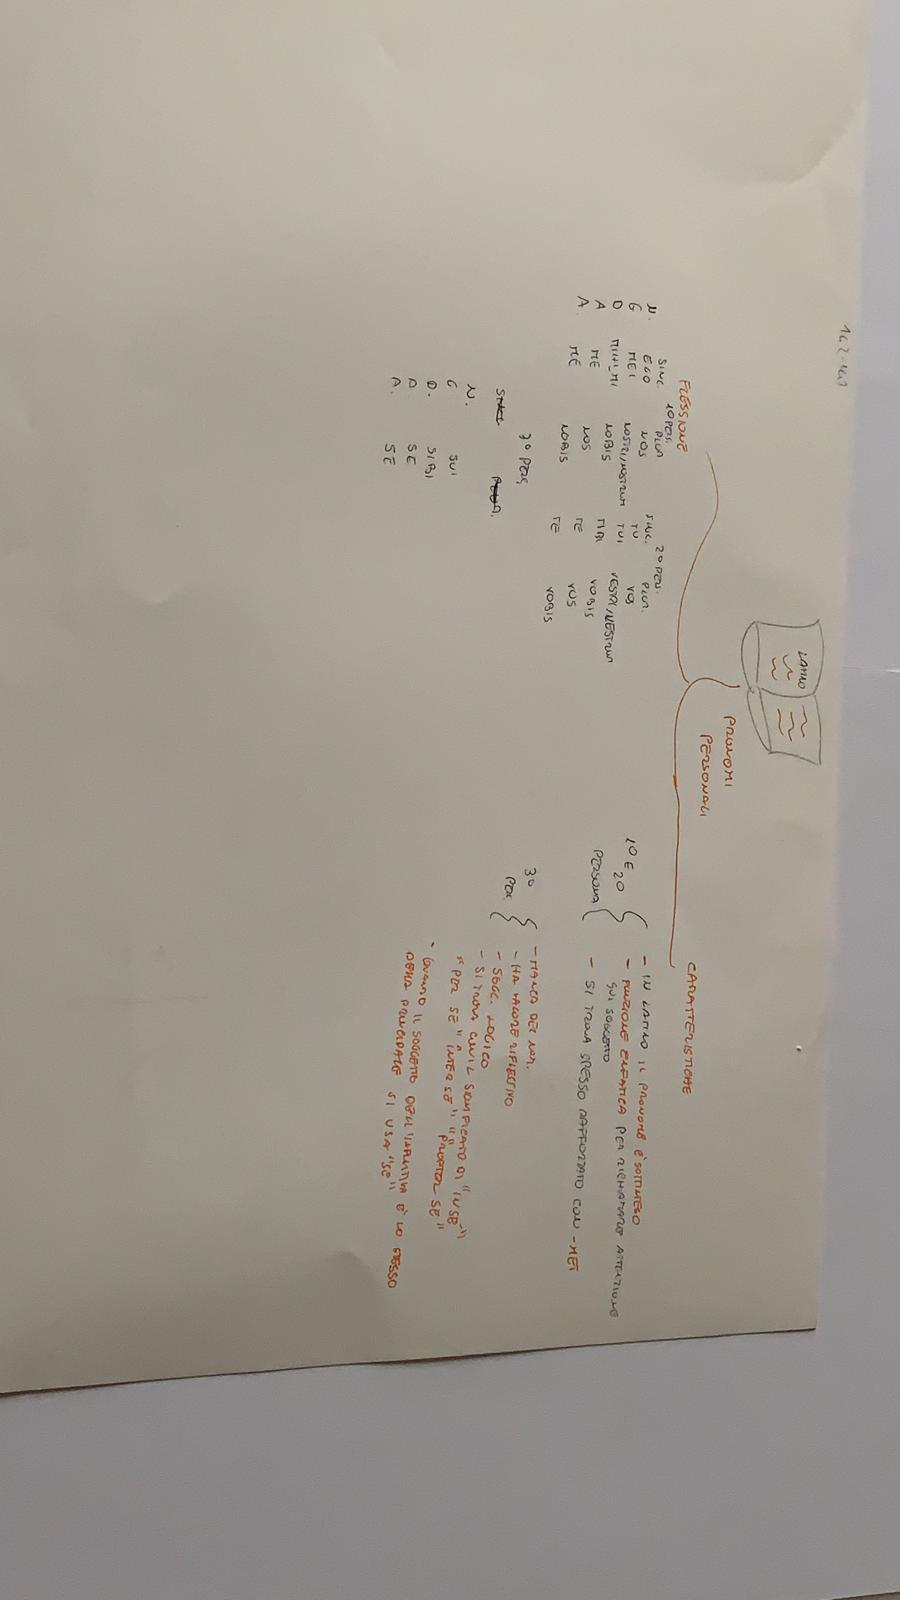 162-163
LATINO
PRONOMI
PERSONALI
FLESSIONE
1° PERS. 2° PERS.
SING PLUR SING. PLUR.
N. EGO NOS TU VOS
G MEI NOSTRI/NOSTRUM TUI VESTRI/VESTRUM
D MIHI, MI NOBIS TIBI VOBIS
A ME NOS TE VOS
A ME NOBIS TE VOBIS
3° PERS,
N.
G SUI
D. SIBI
A SE
A. SE
CARATTERISTICHE
1° E 2°
PERSONA
- IN LATINO IL PRONOME È SOTTINTESO
- FUNZIONE ENFATICA PER RICHIAMARE ATTENZIONE
SUL SOGGETTO
- SI TROVA SPESSO RAFFORZATO CON -MET
3°
PER.
- MANCA DEL NOM.
- HA VALORE RIFLESSIVO
- SOGG. LOGICO
- SI TROVA CON IL SIGNIFICATO DI "IN SE"
"PER SE" "INTER SE" "PROPTER SE"
• QUANDO IL SOGGETTO DELL'INFINITIVA È LO STESSO
DELLA PRINCIPALE SI USA "SE"